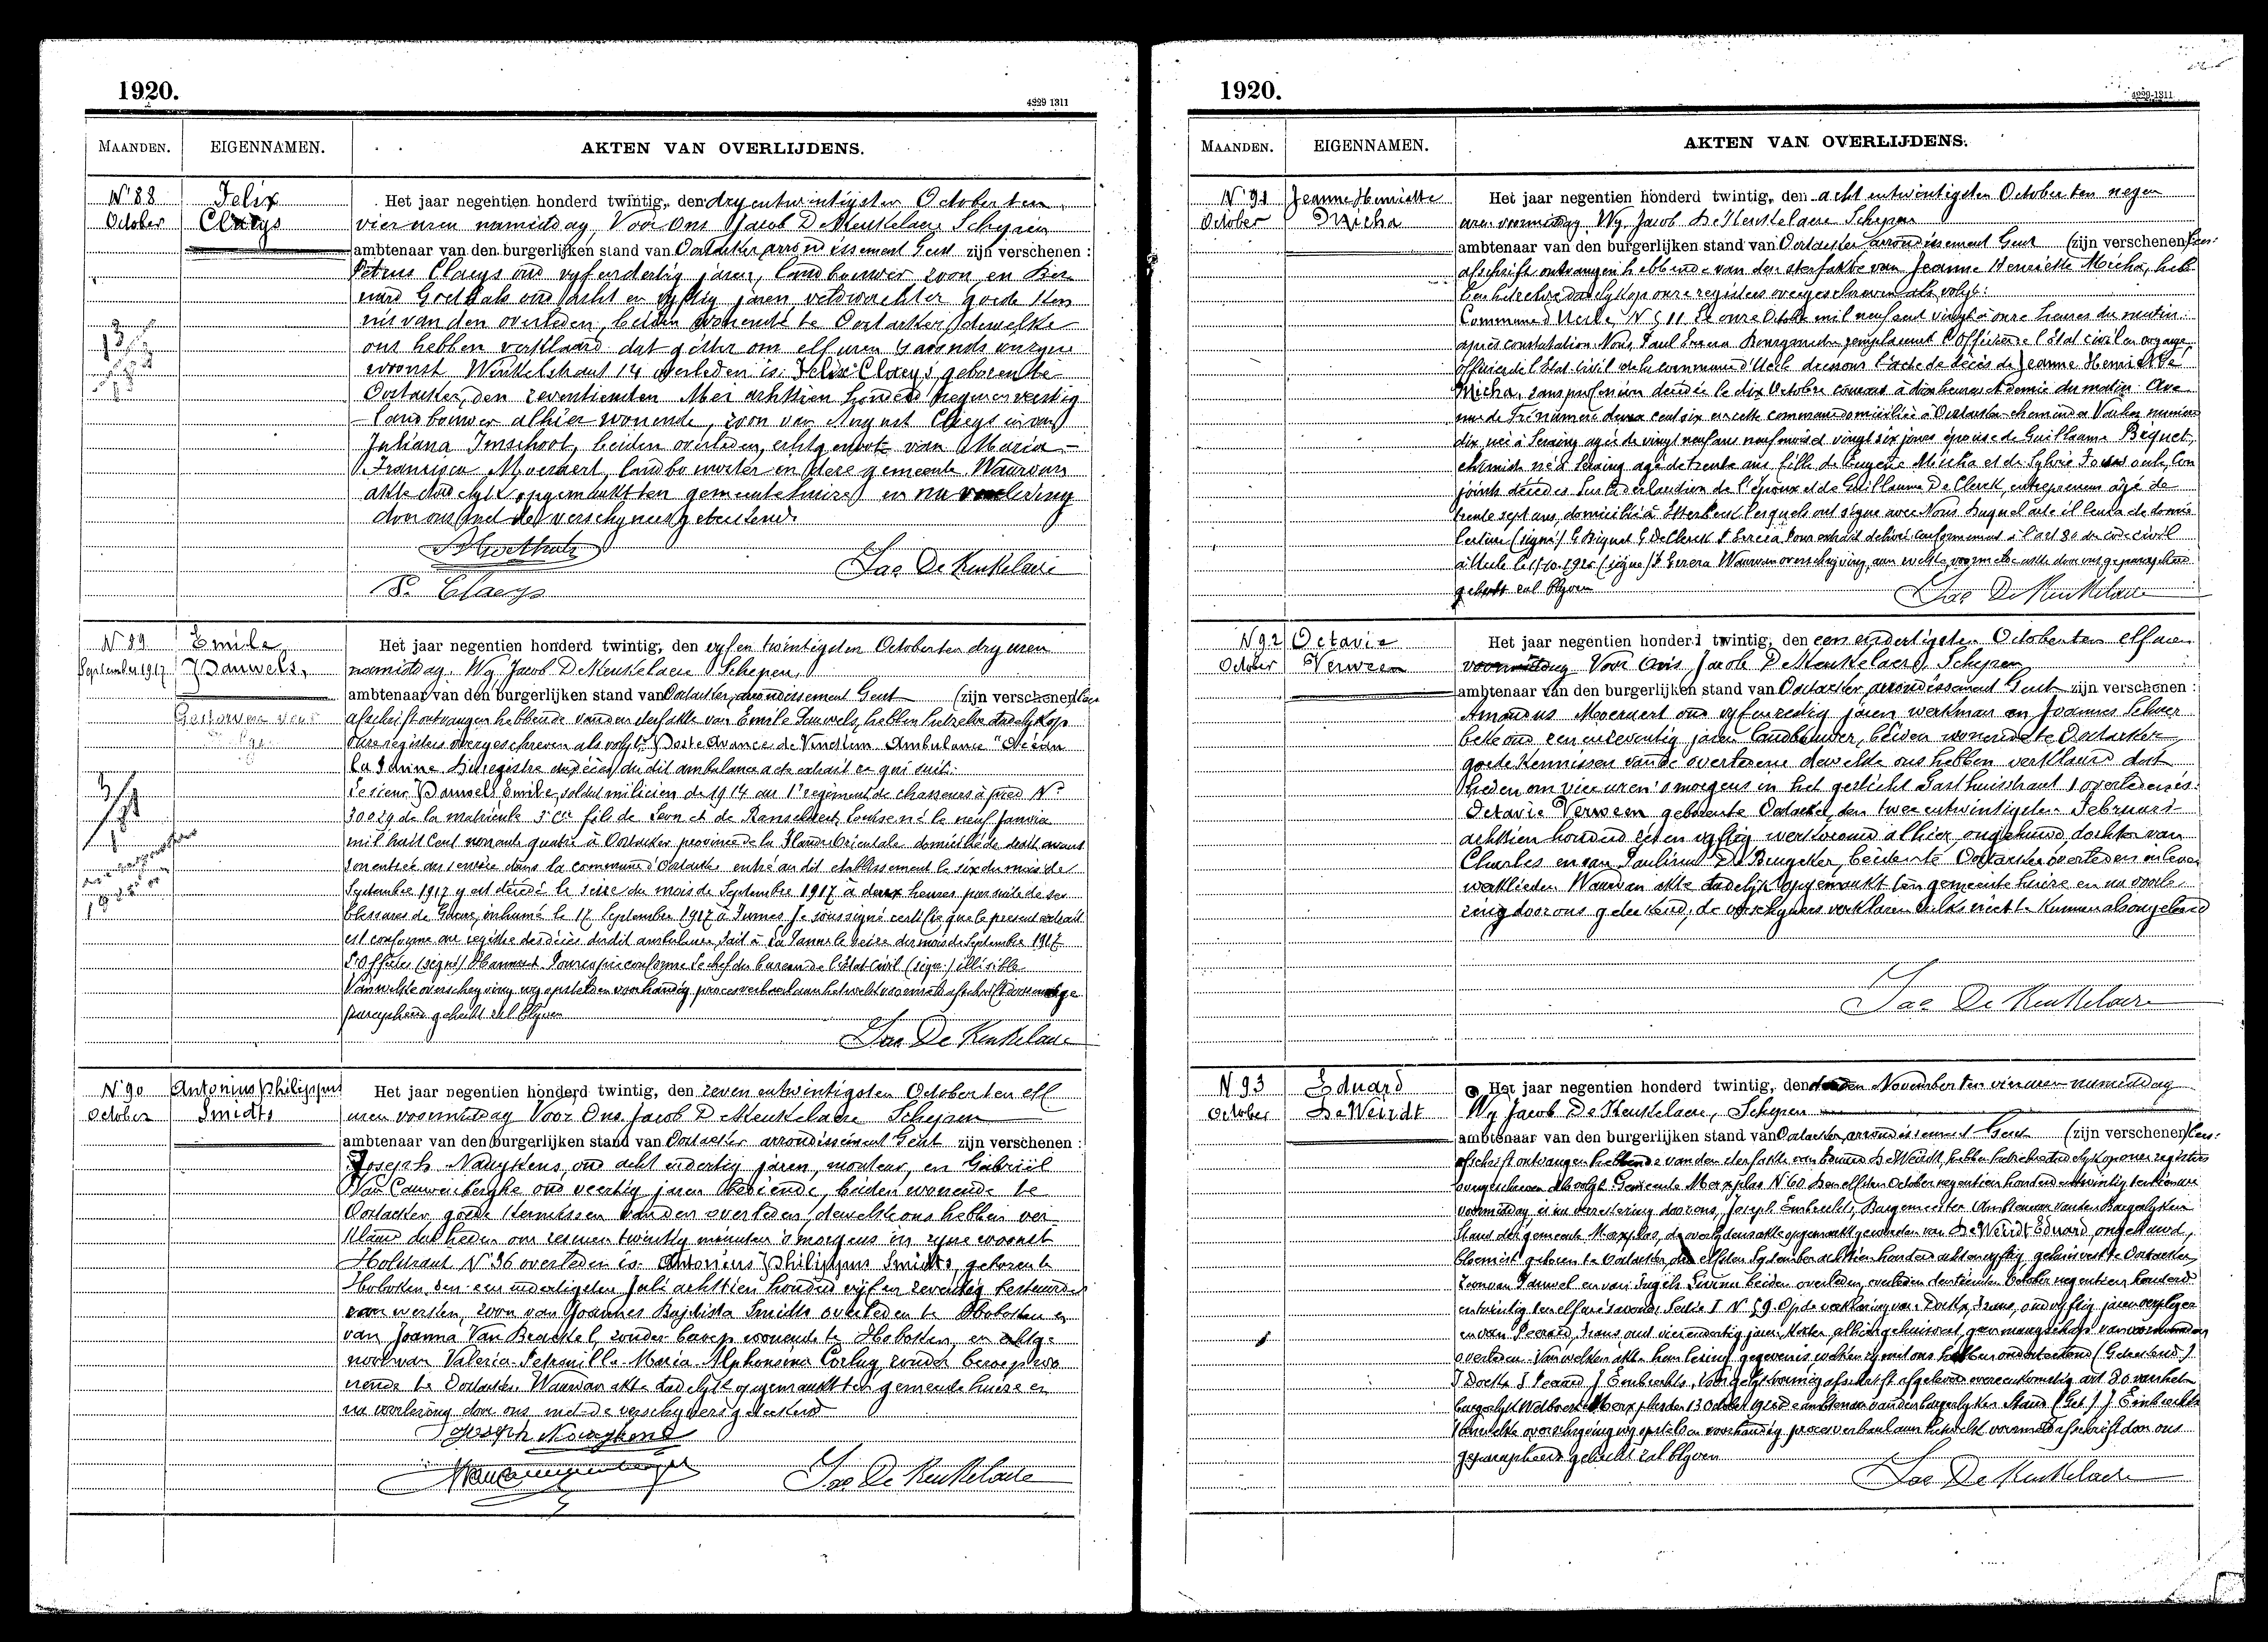 1920.
4229 1311
MAANDEN. EIGENNAMEN. AKTEN VAN OVERLIJDENS.
N° 88
October
Felix
Claeys
Het jaar negentien honderd twintig, den dry entwintigsten October ten
vier uren namiddag, Voor Ons Jacob De Keukelaere Schepen
ambtenaar van den burgerlijken stand van Oostacker arrondissement Gent zijn verschenen :
Petrus Claeys oud vyfendertig jaren, landbouwer zoon en Ber
nard Goethals oud acht en vyftig jaren veldwachter goede ken
nis van den overleden, beiden wonende te Oostacker, dewelke
ons hebben verklaard dat gister om elf uren 's avonds in zyne
woonst Winkelstraat 14 overleden is Felix Claeys, geboren te
Oostacker, den zeventienden Mei achttien honderd negenenveertig
landbouwer alhier wonende, zoon van August Claeys en van
Juliana Imschoot, beiden overleden, echtgenoot van Maria
Francisca Moernaert, landbouwster in deze gemeente Waarvan
akte dadelyk opgemaakt ten gemeentehuize en na voorlezing
door ons met de verschyners geteekend.
P. Claeys
Jac De Keukelaere
N° 89
September 1917
Emile
Pauwels,
Gestorven voor
Het jaar negentien honderd twintig, den vyfen twintigsten October ten dry uren
namiddag. Wy Jacob De Keukelaere Schepen,
ambtenaar van den burgerlijken stand van Oostacker, arrondissement Gent (zijn verschenen) Een
afschrift ontvangen hebbende van den sterfakte van Emile Pauwels, hebben hetzelve dadelyk op
onze registers overgeschreven als volgt: Poste Avancé de Vinckem Ambulance "Océan
La Panne Du registre aux décès du dit ambulance a été extrait ce qui suit:
Le sieur Pauwels Emile, soldat milicien de 1914 au 1r regiment de chasseurs à pied N°
30029 de la matricule 3e Cie fils de Leon et de Louise né le neuf Janvier
mil huit cent nonante quatre à Oostacker province de la Flandre Orientale domicilié de droit avant
son entrée au service dans la commune d'Oostacker entré au dit etablissement le six du mois de
Septembre 1917 y est décédé le seize du mois de Septembre 1917 à deux heures par suite de ses
blessures de Guerre, inhumé le 17 September 1917 à Furnes Je soussigné certifie que le present extrait
est conforme au registre des décès du dit ambulance, Fait à La Panne le seize du mois de Septembre 1917
L'Officier (signé) Pour copie conforme Le chef du bureau de l'Etat Civil (signé) illisible
Van welke overschryving wy opstelden voorhandig procesverbaal aan hetwelk voormeld afschrift door ons ge
parapheerd gehecht zal blyven
Jac De Keukelaere
N° 90
October
Antonius Philippus
Smidts
Het jaar negentien honderd twintig, den zeven entwintigsten October ten elf
uren voormiddag Voor Ons Jacob De Keukelaere Schepen
ambtenaar van den burgerlijken stand van Oostacker arrondissement Gent zijn verschenen :
Joseph Nauykens oud acht endertig jaren, monteur, en Gabriël
Van Cauwenberghe oud veertig jaren bediende, beiden wonende te
Oostacker goede kennissen van den overleden, dewelke ons hebben ver
klaard dat heden om zes uren twintig minuten 's morgens in zyne woonst
Holstraat N° 36 overleden is Antonius Philippus Smidts, geboren te
Hoboken den een endertigsten Juli achttien honderd vyf en zeventig bestuurder
van werken, zoon van Joannes Baptista Smidts overleden te Hoboken en
van Joanna Van Beeckel, zonder beroep wonende te Hoboken, en echtge
noot van Valeria Petronilla Maria Alphonsina zonder beroep wo
nende te Oostacker. Waarvan akte dadelyk opgemaakt ten gemeentehuize en
na voorlezing door ons met de verschyners geteekend
Joseph Nauykens
Jac De Keukelaere
1920.
4229-1311
MAANDEN. EIGENNAMEN. AKTEN VAN OVERLIJDENS.
N° 91
October
Jeanne Henriette
Micha
Het jaar negentien honderd twintig, den acht entwintigsten October ten negen
uren voormiddag Wy Jacob De Keukelaere Schepen
ambtenaar van den burgerlijken stand van Oostacker arrondissement Gent (zijn verschenen) Een
afschrift ontvangen hebbende van den sterfakte van Jeanne Henriette Micha, heb
ben hetzelve dadelyk op onze registers overgeschreven als volgt:
Commune d'Uccle, N° 511 Le onze Octobre mil neuf cent vingt à onze heures du matin
après constatation Nous, Paul Errera Bourgmestre remplaçant l'officier de l'Etat civil en
officier de l'Etat Civil de la commune d'Uccle dressons l'acte de décès de Jeanne Henriette
Micha, sans profession décédée le dix Octobre courant à dix heures et demie du matin Ave
nue de numéro deux cent six en cette commune domiciliée à Oostacker chemin numéro
dix née à Seraing agée de vingt neuf ans neuf mois et vingt six jours épouse de Guillaume Biquet,
chimiste né à Seraing agé de trente ans fille de Eugène Micha et de Sylvie con
joints décédés Sur la déclaration de l'époux et de Guillaume De Clerck, entrepreneur âgé de
trente sept ans, domicilié à Etterbeek lesquels ont signé avec Nous Duquel acte il leur a été donné
lecture (signé) G Biquet G De Clerck P Errera Pour extrait délivré conformement à l'art 80 du code civil
à Uccle le 17-10-1920 (signé) P Errera Waarvan overschryving, aan welke voormelde akte door ons geparapheerd
gehecht zal blyven
Jac De Keukelaere
N 92
October
Octavie
Verween
Het jaar negentien honderd twintig, den een endertigsten October ten elf uren
voormiddag Voor Ons Jacob De Keukelaere, Schepen
ambtenaar van den burgerlijken stand van Oostacker arrondissement Gent zijn verschenen :
Amandus Moernaert oud vyfenzestig jaren werkman en Joannes
oud eenenzeventig jaren landbouwer, beiden wonende te Oostacker
goede kennissen van de overledene dewelke ons hebben verklaard dat
heden om vier uren 's morgens in het gesticht Gasthuisstraat 1 overleden is
Octavie Verween geboren te Oostacker, den twee entwintigsten Februari
achttien honderd zes en vyftig werkvrouw alhier ongehuwd, dochter van
Charles en van Paulina De Bruycker, beiden te Oostacker overleden in leven
werklieden. Waarvan akte dadelyk opgemaakt ten gemeentehuize en na voorle
zing door ons geteekend, de verschyners verklaren zulks niet te kunnen als ongeleerd
Jac De Keukelaere
N 93
October
Eduard
De Weirdt
Het jaar negentien honderd twintig, den November ten vier uren namiddag
Wy Jacob De Keukelaere, Schepen
ambtenaar van den burgerlijken stand van Oostacker, arrondissement Gent (zijn verschenen) Een
afschrift ontvangen hebbende van den sterfakte van Eduard De Weirdt, hebben hetzelve dadelyk op onze registers
overgeschreven als volgt Gemeente Merxplas N° 60 Den elfden October negentien honderd en twintig
voormiddag, is na door ons, Joseph Embrechts, Burgemeester Ambtenaar van den Burgerlyken
Stand der gemeente Merxplas, de overlydensakte opgemaakt geworden van De Weirdt Eduard, ongehuwd,
bloemist geboren te Oostacker den elfden September achttien honderd acht en vyftig gehuisvest te Oostacker,
zoon van en van beiden overleden, overleden den tienden October negentien honderd
entwintig ten elf uren 's avonds Sectie I N° 59 Op de verklaring van oud vyftig jaren
en van Frans, oud vierendertig jaren, alhier gehuisvest, geen maagschap van
overleden. Van welken akte hun lezing gegeven is, welken zy met ons hebben onderteekend (Geteekend)
J. Embrechts, Voor gelykvormig afschrift afgeleverd overeenkomstig art 80 van het
burgerlyk Wetboek Merxplas den 13 October 1920 De ambtenaar van den burgerlyken Stand (Get.) J. Embrechts
Van welke overschryving wy opstelden voorhandig procesverbaal aan hetwelk voormeld afschrift door ons
geparapheerd gehecht zal blyven
Jac De Keukelaere